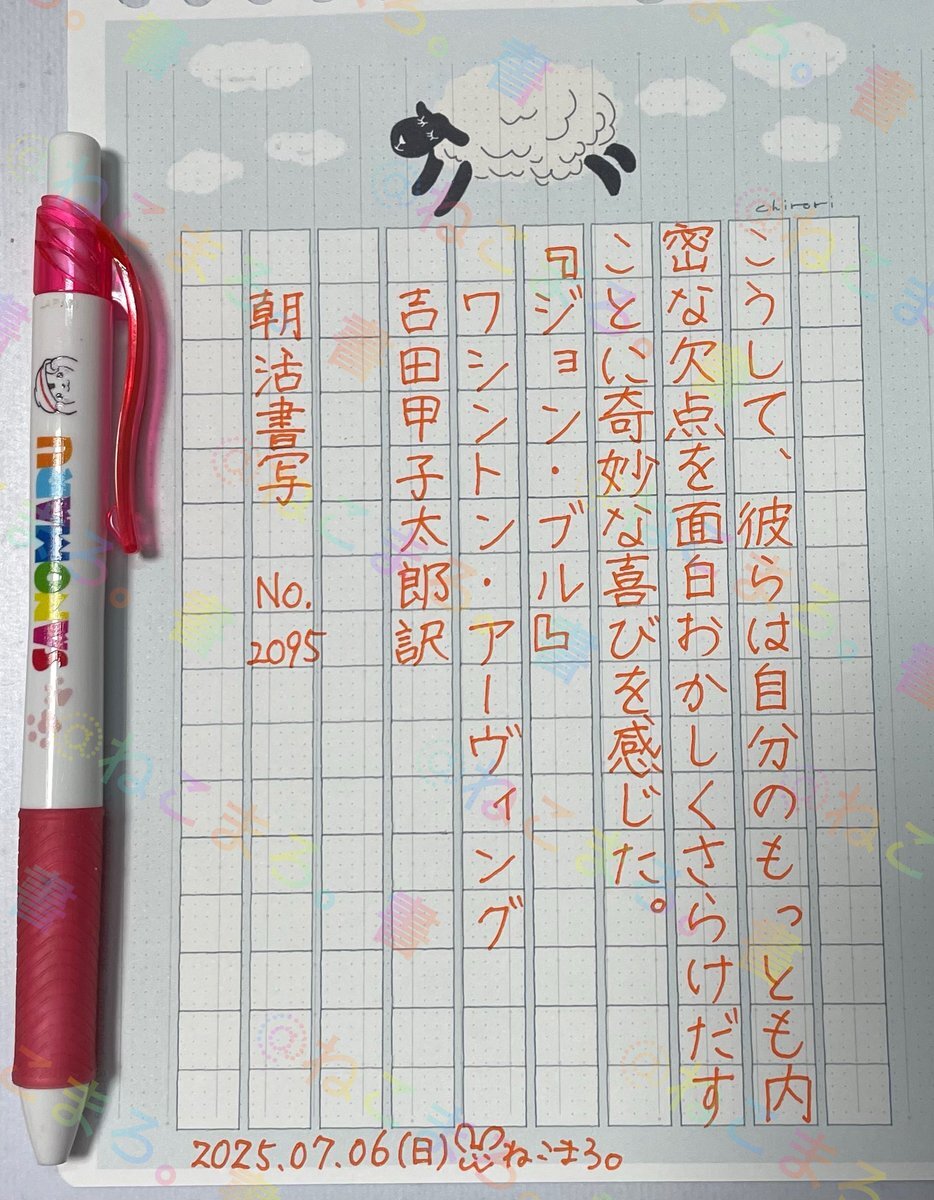 chirori
こうして、彼らは自分のもっとも内
密な欠点を面白おかしくさらけだす
ことに奇妙な喜びを感じた。
『ジョン・ブル』
ワシントン・アーヴィング
吉田甲子太郎訳
朝活書写 No. 2095
2025.07.06(日)ねこまろ。
SANOMAVU
@ねこまろ。書